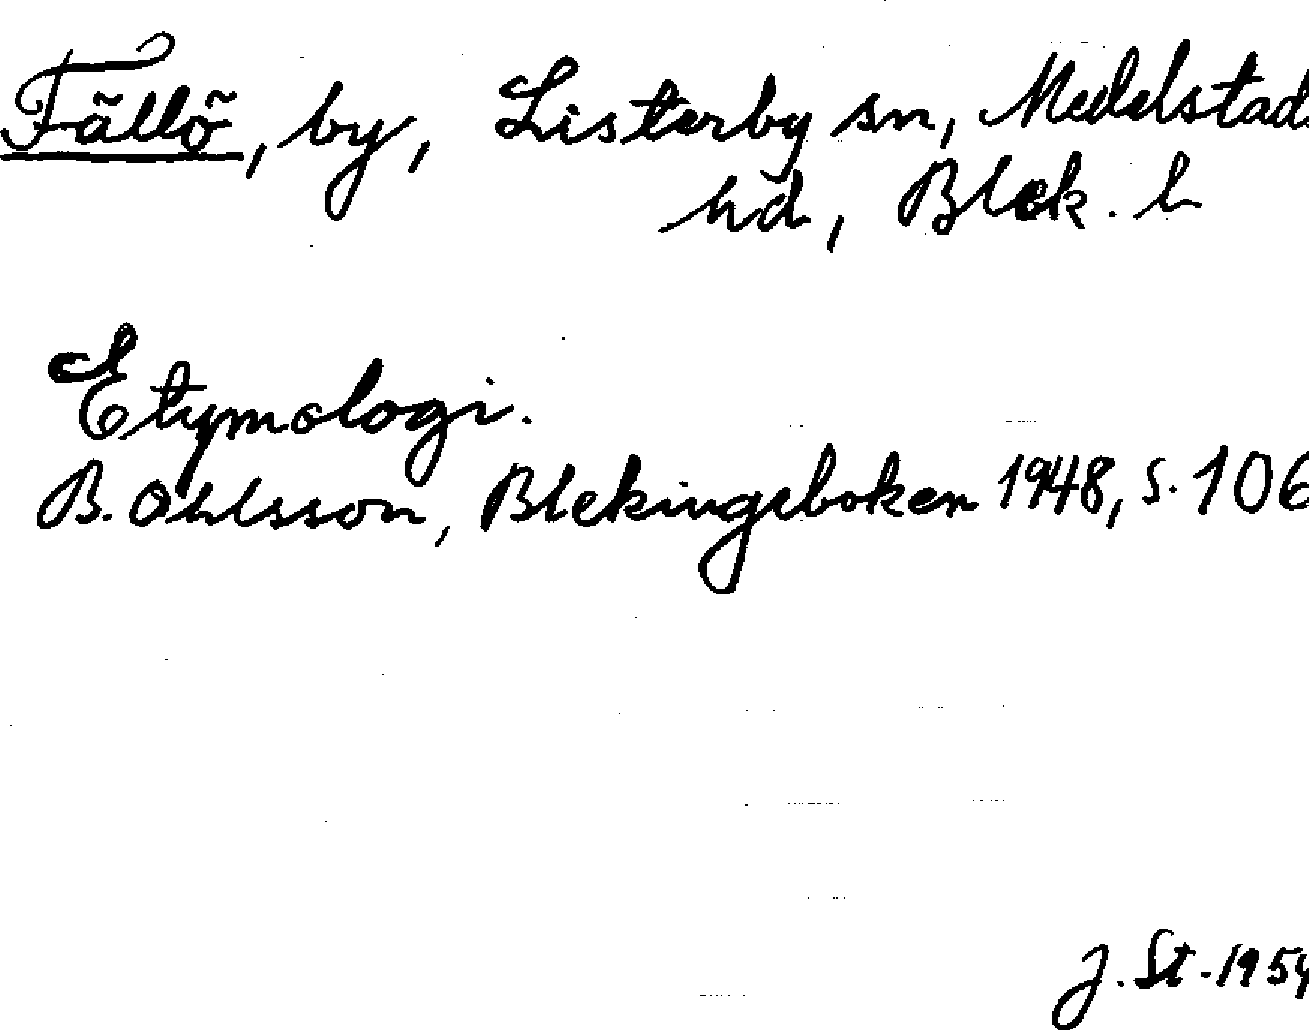 Fällö, by, Listerby sn, Medelstads
hd, Blek. l
Etymologi.
B. Ohlsson, Blekingeboken 1948, s. 106
J. St. 1954